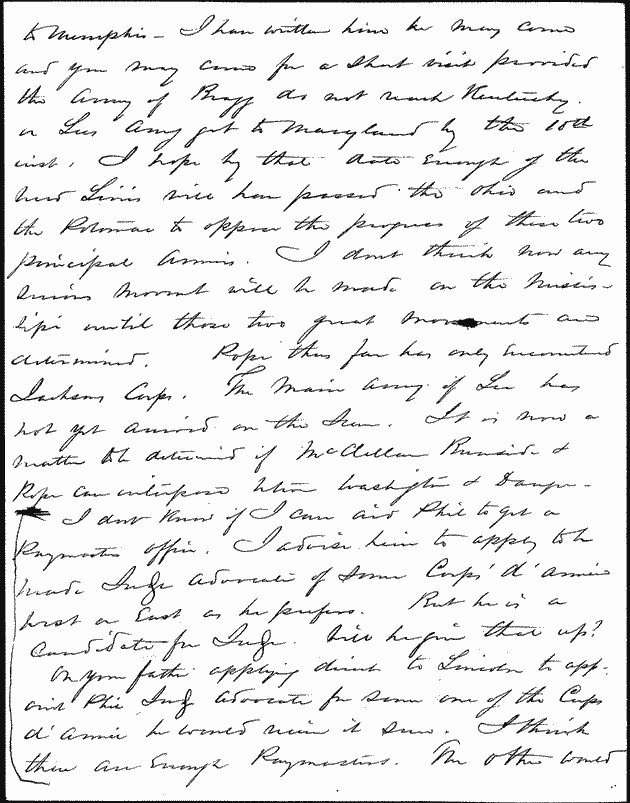 to Memphis - I have written him he may come
and you may come for a short visit provided
the Army of Bragg do not reach Kentucky.
or Lees Army get to Maryland by the 10th
inst. I hope by that date Enough of the
new Levies will have passed the Ohio and
the Potomac to oppose the progress of these two
principal Armies. I dont think now any
serious movemt will be made on the Missis-
sipi until those two great movements are
determined. Pope thus far has only Encountered
Jacksons Corps. The Main Army of Lee has
not yet arrived on the Scene. It is now a
matter to be determined if McClellan Burnside &
Pope can interpose between Washington & Danger -
I dont Know if I can aid Phil to get a
Paymasters office. I advise him to apply to be
made Judge Advocate of some Corps d' armée
West or East as he prefers. But he is a
Candidate for Judge. Will he give that up?
On your father applying direct to Lincoln to app-
oint Phil Judge Advocate for some one of the Corps
d' Armée he would receive it sure. I think
there are Enough Paymasters. The other would